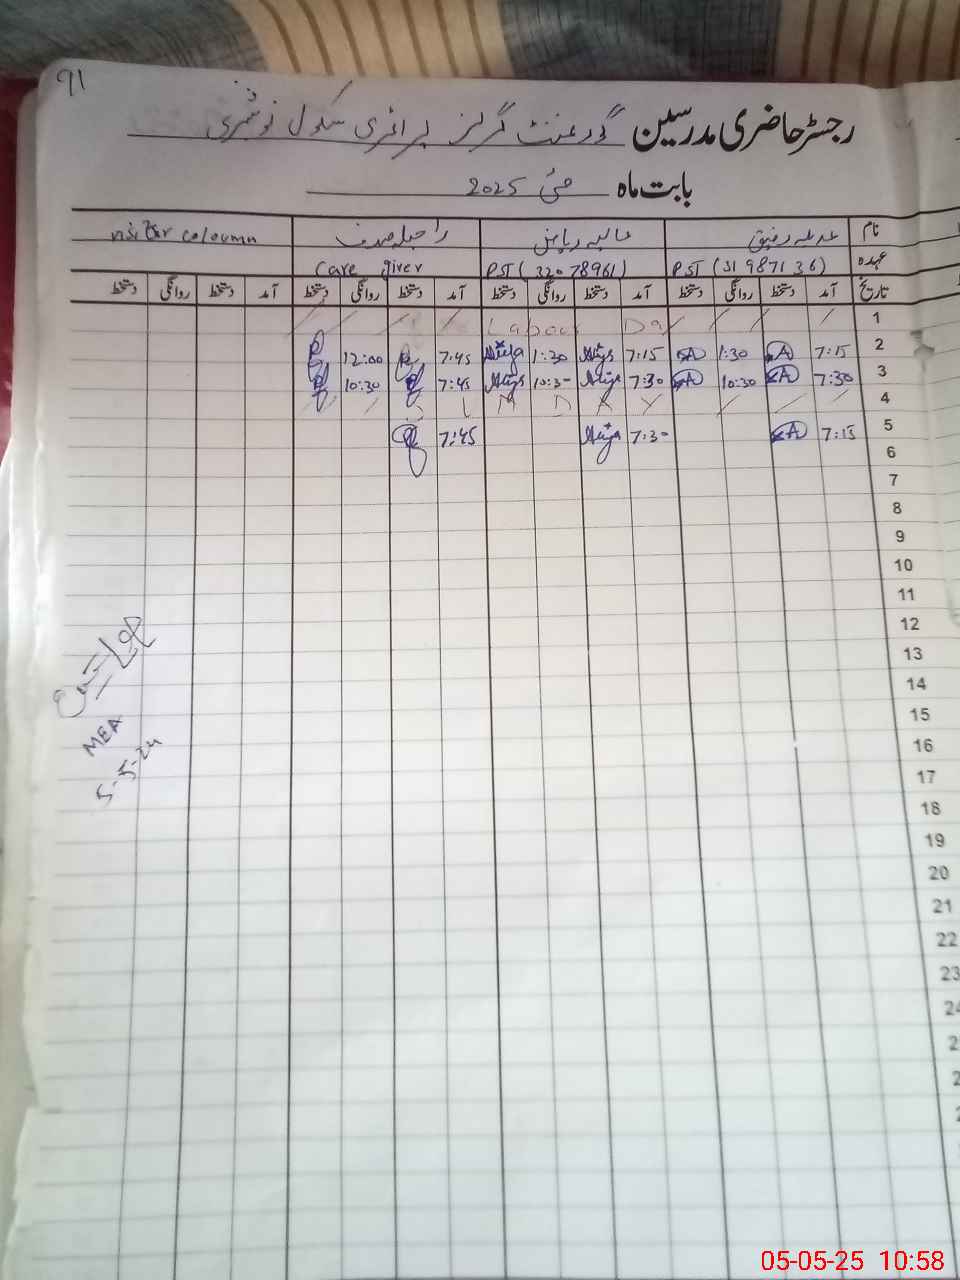 91
رجسٹر حاضری مدرسین گورنمنٹ گرلز پرائمری سکول نوشہری
بابت ماہ مئی 2025
نام عدیلہ رفیق عالیہ ریاض راحیلہ صدف visiter coloumn
عہدہ PST (31987136) PST (32078961) Care giver
تاریخ آمد دستخط روانگی دستخط آمد دستخط روانگی دستخط آمد دستخط روانگی دستخط آمد دستخط روانگی دستخط
1 Labour Day
2 7:15 A 1:30 A 7:15 Aliya 1:30 Aliya 7:45 12:00
3 7:30 A 10:30 A 7:30 Aliya 10:30 Aliya 7:45 10:30
4 S U N D A Y
5 7:15 A 7:30 Aliya 7:45
6
7
8
9
10
11
12
13
14
15
16
17
18
19
20
21
22
23
24
MEA
5-5-24
05-05-25 10:58